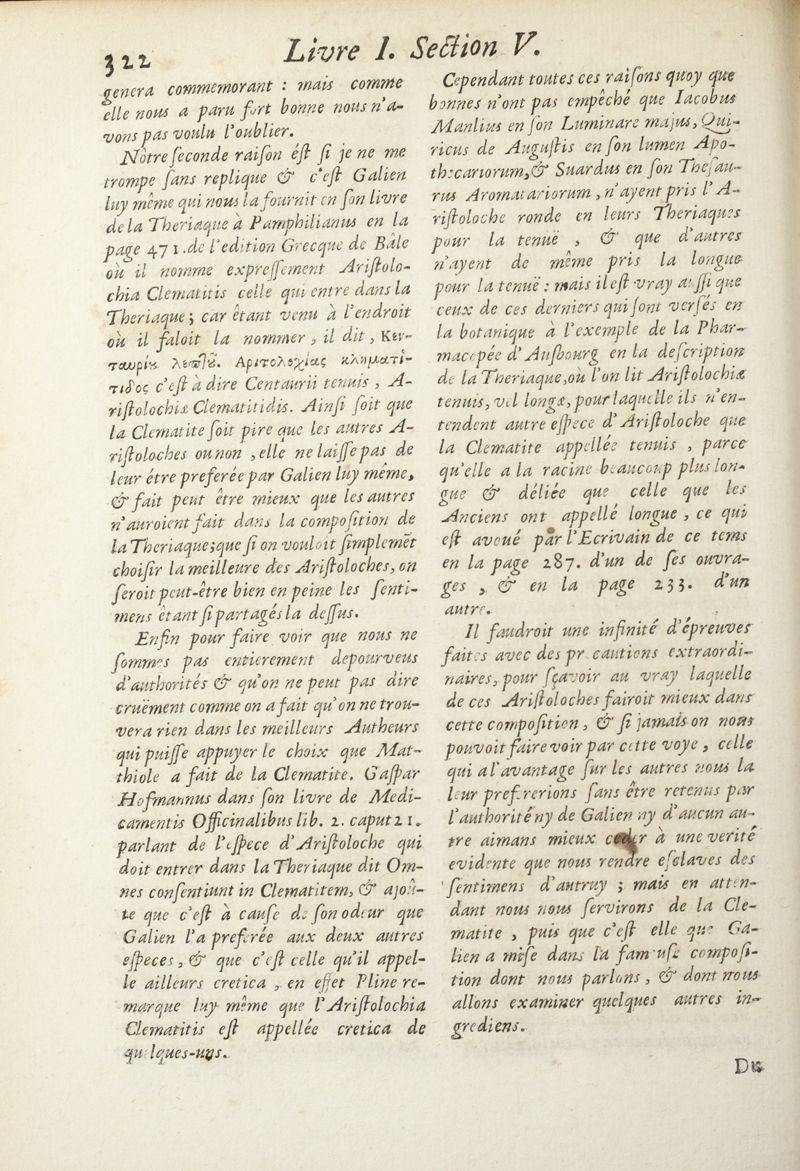 322
Livre I. Section V.
genera commemorant : mais comme
elle nous a paru fort bonne nous n'a-
vons pas voulu l'oublier.
Nôtre seconde raison est si je ne me
trompe sans replique & c'est Galien
luy même qui nous la fournit en son livre
de la Theriaque à Pamphilianus en la
page 471. de l'edition Grecque de Bâle
où il nomme expressement Aristolo-
chia Clematitis celle qui entre dans la
Theriaque ; car êtant venu à l'endroit
où il faloit la nommer, il dit, Κεν-
ταυρίς λεπτȣ͂. Αριτολοχίας κλημματί-
τιδος c'est à dire Centaurii tenuis, A-
ristolochiæ Clematitidis. Ainsi soit que
la Clematite soit pire que les autres A-
ristoloches ou non, elle ne laisse pas de
leur étre preferée par Galien luy même,
& fait peut être mieux que les autres
n'auroient fait dans la composition de
la Theriaque; que si on vouloit simplemēt
choisir la meilleure des Aristoloches, on
seroit peut-être bien en peine les senti-
mens êtant si partagés là dessus.
Enfin pour faire voir que nous ne
sommes pas entierement depourveus
d'authorités & qu'on ne peut pas dire
cruëment comme on a fait qu'on ne trou-
vera rien dans les meilleurs Autheurs
qui puisse appuyer le choix que Mat-
thiole a fait de la Clematite. Gaspar
Hofmannus dans son livre de Medi-
camentis Officinalibus lib. 2. caput 21.
parlant de l'espece d'Aristoloche qui
doit entrer dans la Theriaque dit Om-
nes consentiunt in Clematitem, & ajoû-
te que c'est à cause de son odeur que
Galien l'a preferée aux deux autres
especes, & que c'est celle qu'il appel-
le ailleurs cretica, en effet Pline re-
marque luy même que l'Aristolochia
Clematitis est appellée cretica de
quelques-uns.
Cependant toutes ces raisons quoy que
bonnes n'ont pas empêché que Iacobus
Manlius en son Luminare majus, Qui-
ricus de Augustis en son lumen Apo-
thecariorum, & Suardus en son Thesau-
rus Aromatariorum, n'ayent pris l'A-
ristoloche ronde en leurs Theriaques
pour la tenuë, & que d'autres
n'ayent de même pris la longue
pour la tenuë : mais il est vray aussi que
ceux de ces derniers qui sont versés en
la botanique à l'exemple de la Phar-
macopée d'Ausbourg en la description
de la Theriaque, où l'on lit Aristolochiæ
tenuis, vel longæ, pour laquelle ils n'en-
tendent autre espece d'Aristoloche que
la Clematite appellée tenuis, parce
qu'elle a la racine beaucoup plus lon-
gue & déliée que celle que les
Anciens ont appellé longue, ce qui
est avoué par l'Ecrivain de ce tems
en la page 287. d'un de ses ouvra-
ges, & en la page 233. d'un
autre.
Il faudroit une infinité d'épreuves
faites avec des precautions extraordi-
naires, pour sçavoir au vray laquelle
de ces Aristoloches fairoit mieux dans
cette composition, & si jamais on nous
pouvoit faire voir par cette voye, celle
qui a l'avantage sur les autres nous la
leur prefererions sans être retenus par
l'authorité ny de Galien ny d'aucun au-
tre aimans mieux ceder à une verité
evidente que nous rendre esclaves des
sentimens d'autruy ; mais en atten-
dant nous nous servirons de la Cle-
matite, puis que c'est elle que Ga-
lien a mise dans la fameuse composi-
tion dont nous parlons, & dont nous
allons examiner quelques autres in-
grediens.
Du